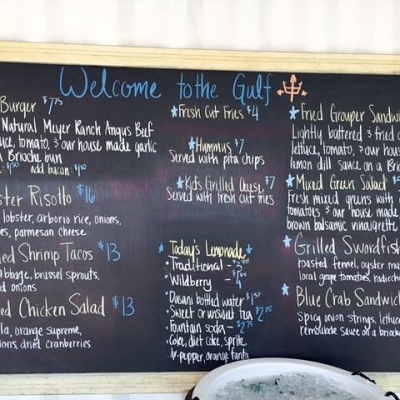 Welcome to the Gulf
Burger $7.75
Natural Meyer Ranch Angus Beef
tomato, & our house made garlic
Brioche bun
add bacon
Risotto $16
lobster, arborio rice, onions,
parmesan cheese
Shrimp Tacos $13
brussel sprouts,
and onions
Chicken Salad $13
orange supreme,
dried cranberries
Fresh Cut Fries $4
Hummus $7
Served with pita chips
Kids Grilled Cheese $7
Served with fresh cut fries
Today's Lemonade
Traditional
Wildberry
Dasani bottled water
Sweet or unsweet tea
Fountain soda
Coke, diet coke, sprite,
Dr. pepper, orange fanta
Fried Grouper Sandw
Lightly battered & fried
lettuce, tomato, & our house
lemon dill sauce on a
Mixed Green Salad
Fresh mixed greens with
tomatoes & our house made
brown balsamic vinaigrette
Grilled Swordfish
roasted fennel, oyster
local grape tomatoes,
Blue Crab Sandwich
Spicy onion strings, lettuce
remoulade sauce on a